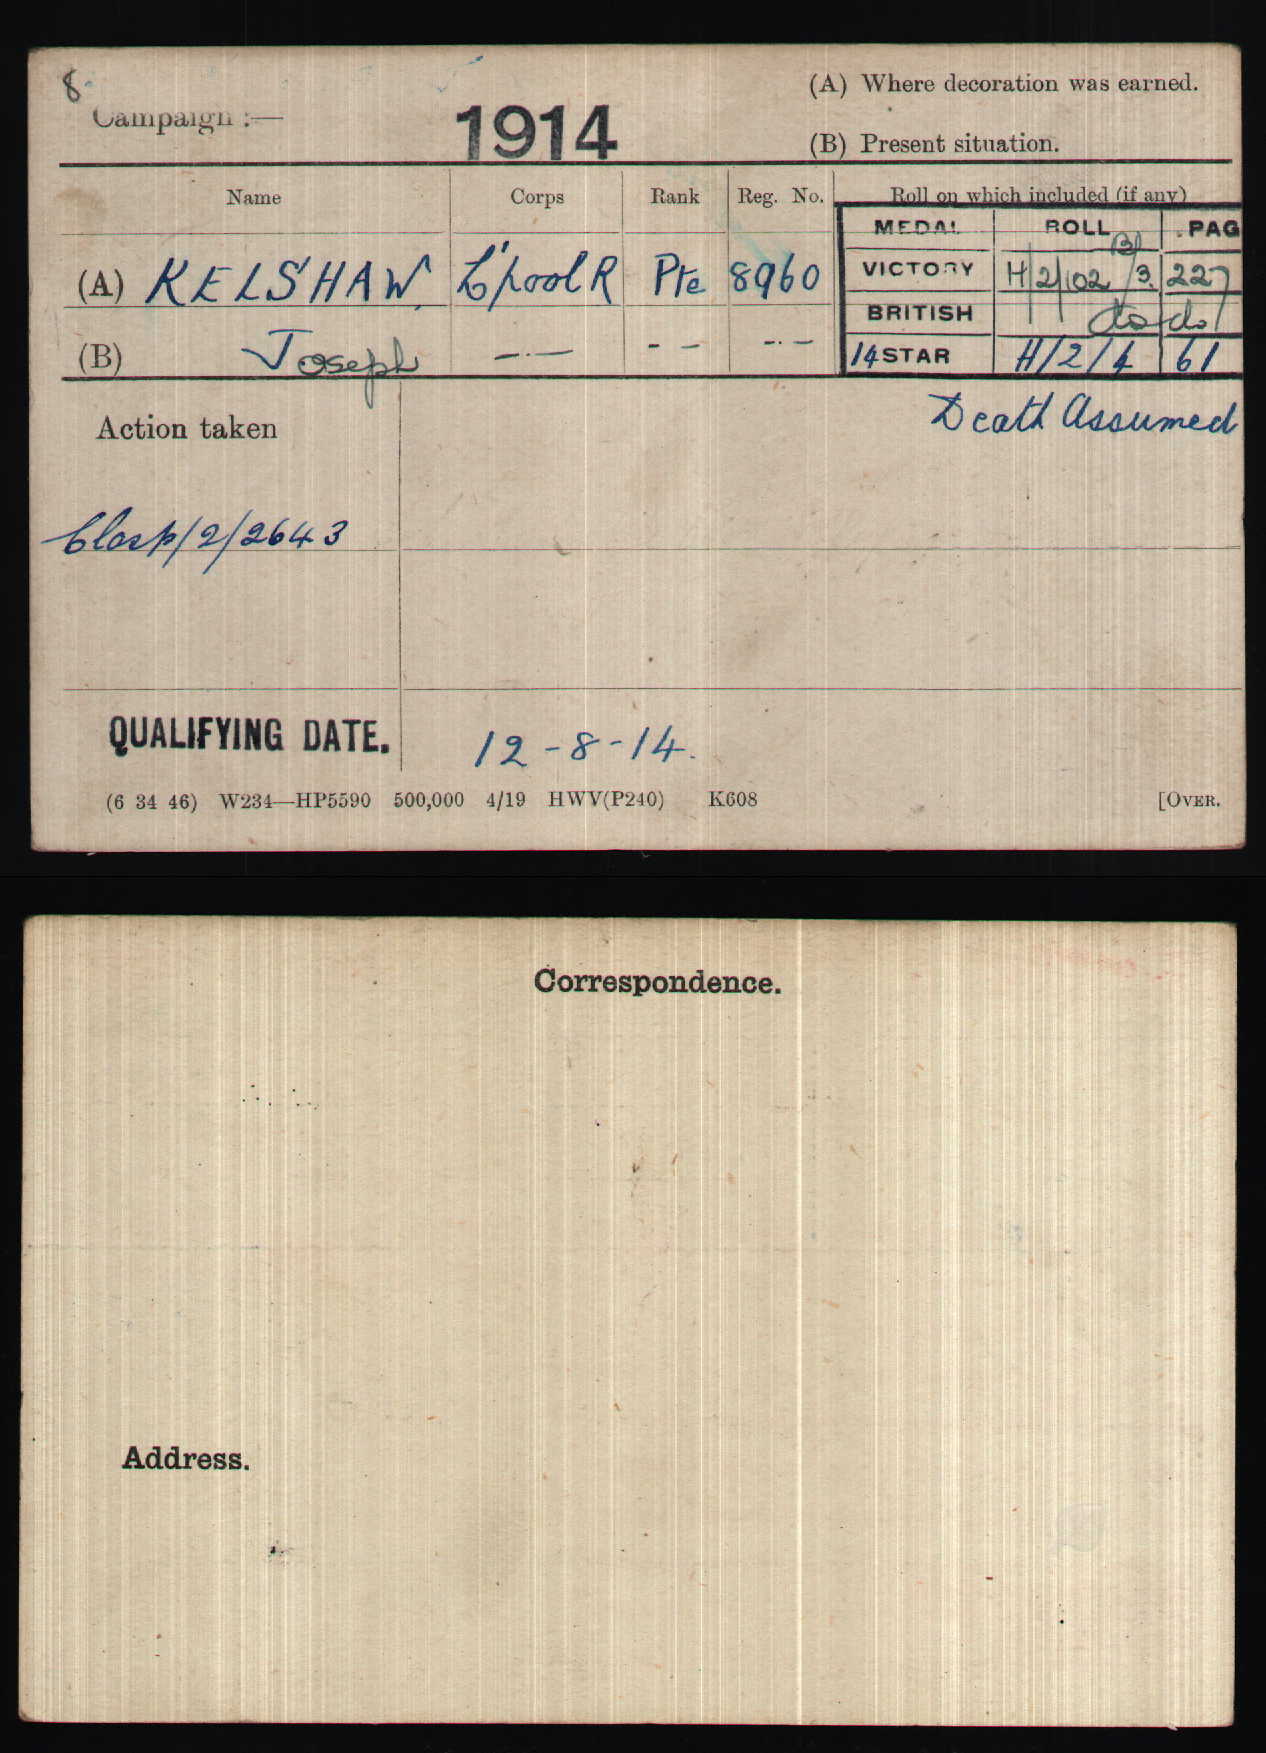 8
Campaign :—
1914
(A) Where decoration was earned.
(B) Present situation.
Name Corps Rank Reg. No. Roll on which included (if any)
MEDAL ROLL PAG
(A) KELSHAW L'pool R Pte 8960 VICTORY H/2/102 B/3. 227
BRITISH do do
(B) Joseph —·— — — —·— 14 STAR H/2/4 61
Action taken
Death Assumed
Clasp/2/2643
QUALIFYING DATE. 12-8-14.
(6 34 46) W234—HP5590 500,000 4/19 HWV(P240) K608 [OVER.
Correspondence.
Address.